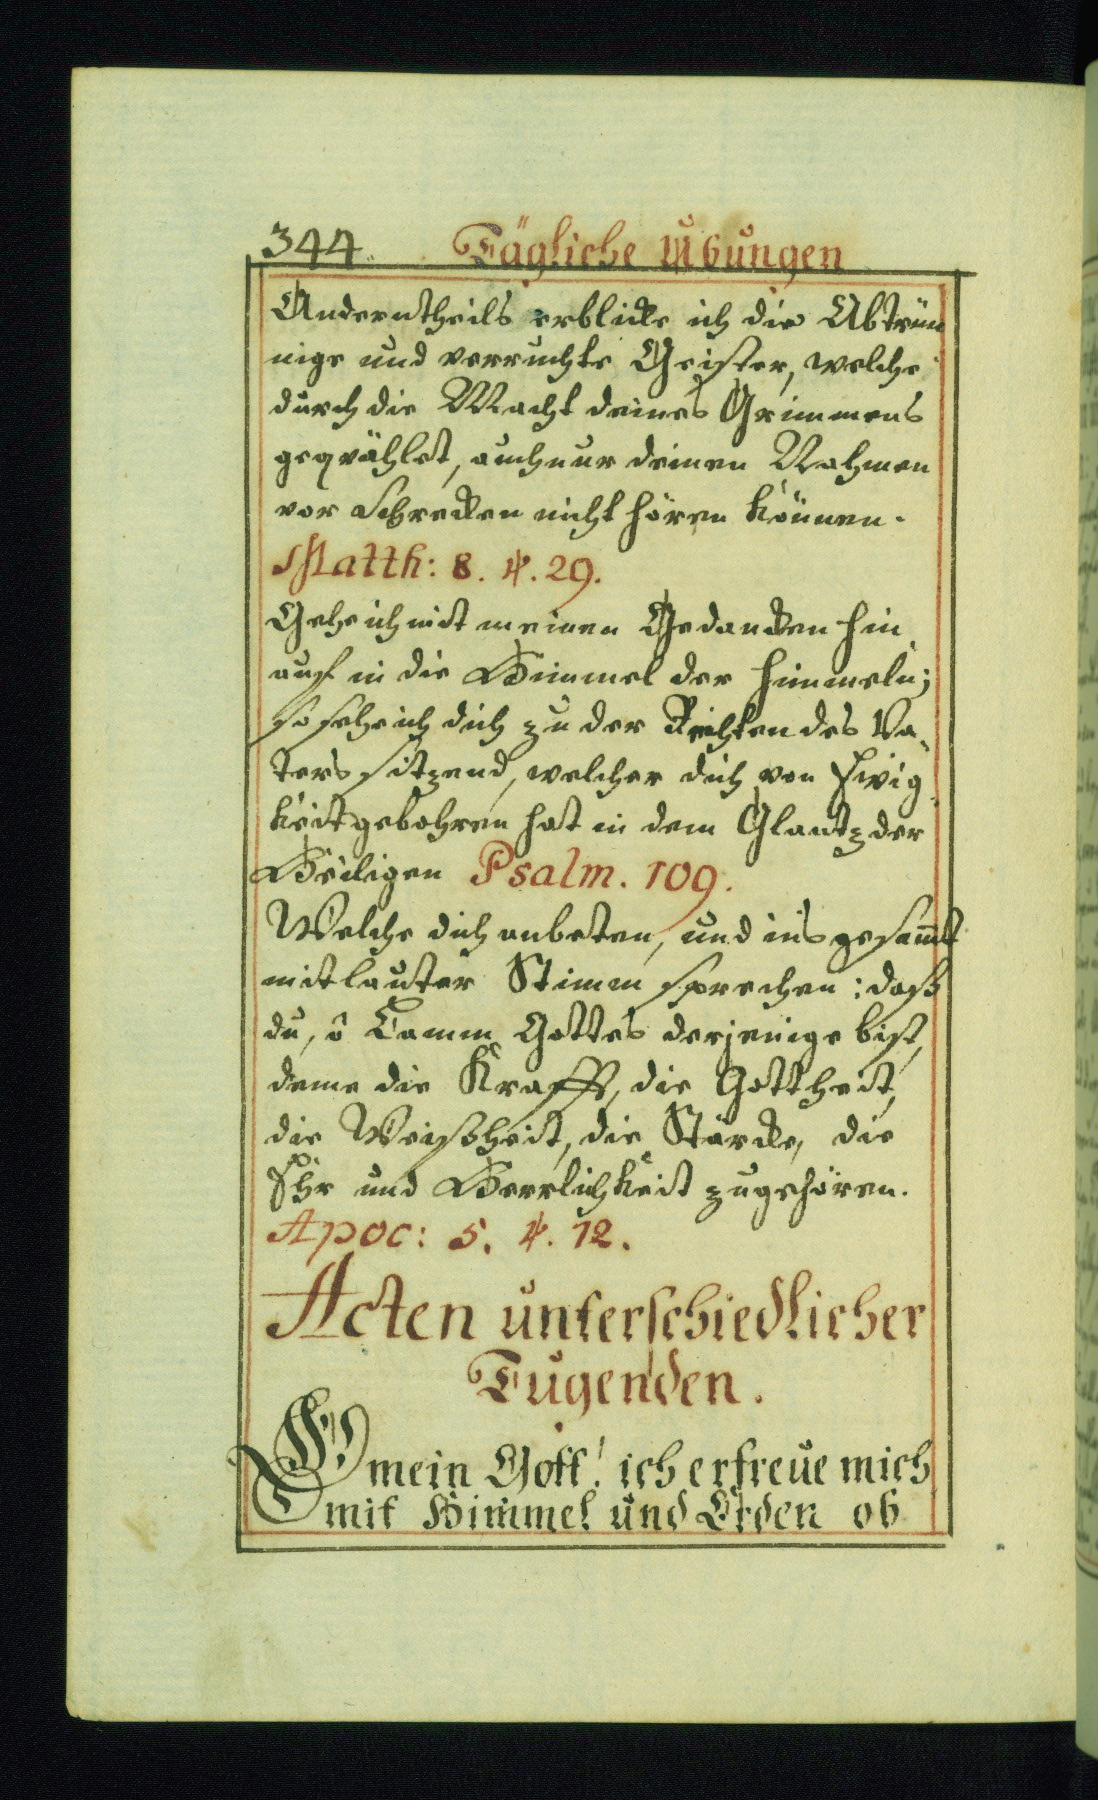 344. Tägliche Übungen
Anderntheils erblicke ich die Abtrün
nige und verruchte Geister, welche
durch die Macht deines Grimmens
geqvählet, auch nur deinen Nahmen
vor Schrecken nicht hören können.
Matth: 8. ℣. 29.
Gehe ich mit meinen Gedancken hin
auf in die Himmel der Himmeln;
so sehe ich dich zu der Rechten des Va„
ters sitzend, welcher dich von Ewig„
keit gebohren hat in dem Glantz der
Heiligen Psalm. 109.
Welche dich anbeten, und ins gesam̅t
mit lauter Stimm sprechen: daß
du, ô Lamm Gottes derjenige bist,
deme die Krafft, die Gottheit,
die Weißheit, die Stärcke, die
Ehr und Herrlichkeit zugehören.
Apoc: 5. ℣. 12.
Acten unterschiedlicher
Tugenden.
O mein Gott! ich erfreue mich
mit Himmel und Erden ob